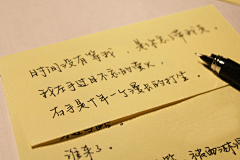 时间没有等我，是你忘了带我走，
我左手过目不忘的萤火，
右手是十年一个漫长的打坐。
谁来了